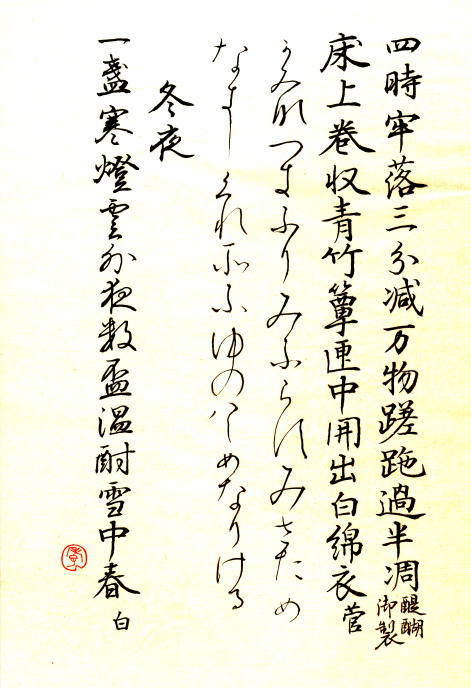 四時牢落三分減万物蹉跎過半凋醍醐御製
床上巻収青竹簟匣中開出白綿衣菅
かみなつきふりみふらすみさため
なきしくれそふゆのはしめなりける
冬夜
一盞寒燈雲外夜数盃温酎雪中春白